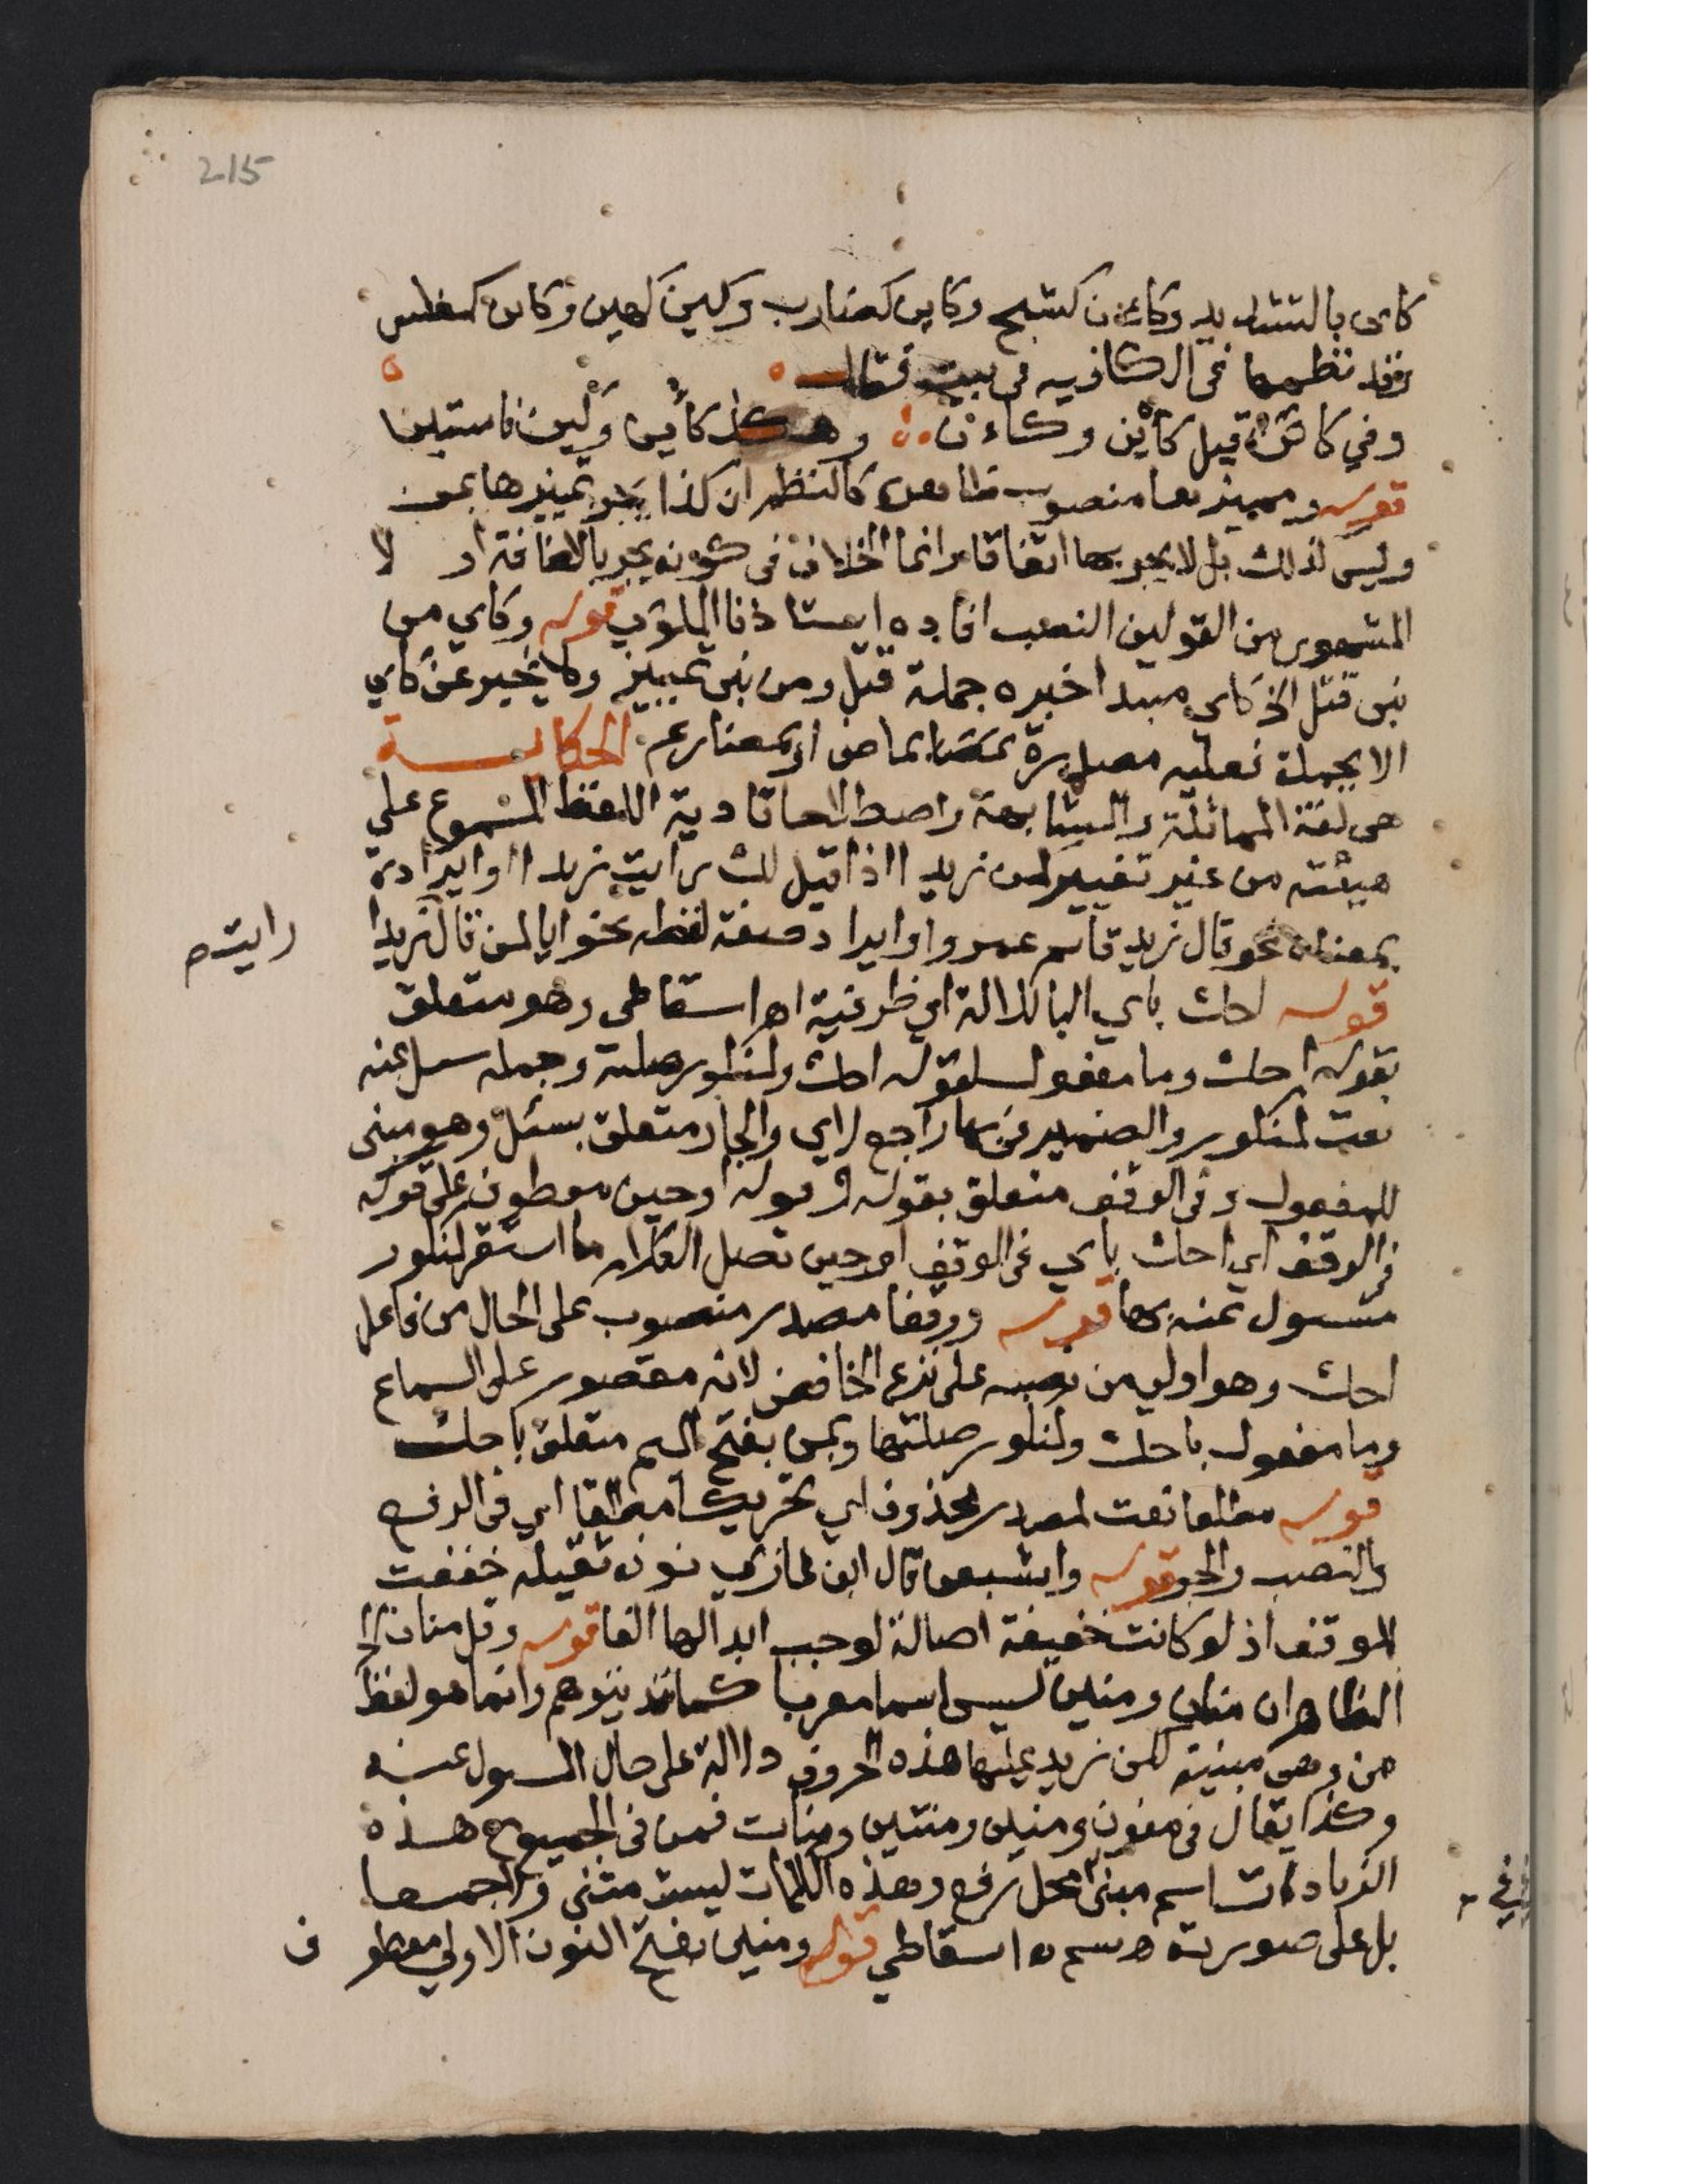 215
كاى بالتشديد وكاءن كشج وكاين كضارب وكيئن كهين وكاىن كفلس
وقد نظمها فى الكافيه فى بيت فقال
وفي كاىن قيل كأين وكاءن وهكذا كأين وكيئن فاستبن
قوله ومميزها منصوب ظاهره كالنظم ان كذا يجر تمييزها بمن
وليس كذلك بل لا يجر بها اتفاقا وانما الخلاف فى كونه يجر بالاضافة او لا
المشهور من القولين النصب افاده استاذنا الملوي قوله وكاي من
نبى قتل الخ كاي مبتدا خبره جملة قتل ومن نبى تمييز ولا يخبر عن كاي
الا بجملة فعليه مصدرة بماض او بمضارع الحكاية
هى لغة المماثلة والمشابهة واصطلاحا تادية اللفظ المسموع على
هيئته من غير تغيير كمن زيدا اذا قيل لك رايت زيدا او ايراده
بمعناه نحو قال زيد قائم عمرو او ايراد صفة لفظه نحو ايا لمن قال زيدا
رايت
قوله احك باي الباء للالة اي ظرفية اه اسقاطى وهو متعلق
بقوله احك وما مفعول لقوله احك ولمنكور صلته وجملة سئل عنه
نعت لمنكور والضمير فى بها راجع لاي والجار متعلق بسئل وهو مبنى
للمفعول وفى الوقف متعلق بقوله وقوله او حين معطوف على قوله
فى الوقف اي احك باي فى الوقف او حين تصل الكلام ما استقر لمنكور
مسئول عنه بها قوله ووقفا مصدر منصوب على الحال من فاعل
احك وهو اولى من نصبه على نزع الخافض لانه مقصور على السماع
وما مفعول باحك ولمنكور صلتها وبمن بفتح الميم متعلق باحك
قوله مطلقا نعت لمصدر محذوف اي تحريكا مطلقا اي فى الرفع
والنصب والجر قوله واشبعن قال ابن غازي نون ثقيله خففت
للوقف اذ لو كانت خفيفة اصالة لوجب ابدالها الفا قوله وقل منان الخ
الظاهر ان منان ومنين ليس اسما معربا كما قد يتوهم وانما هو لفظ
من وهى مبنية لكن زيد عليها هذه الحروف دلالة على حال المسول عنه
وكذا يقال فى منون ومنين ومنتين ومنات فمن فى الجميع هذه
الزيادات اسم مبنى محل رفع وهذه الكلمات ليست مثنى ولا جمعا
بل على صورته اسقاطي قوله ومنين بفتح النون الاولى معطوف